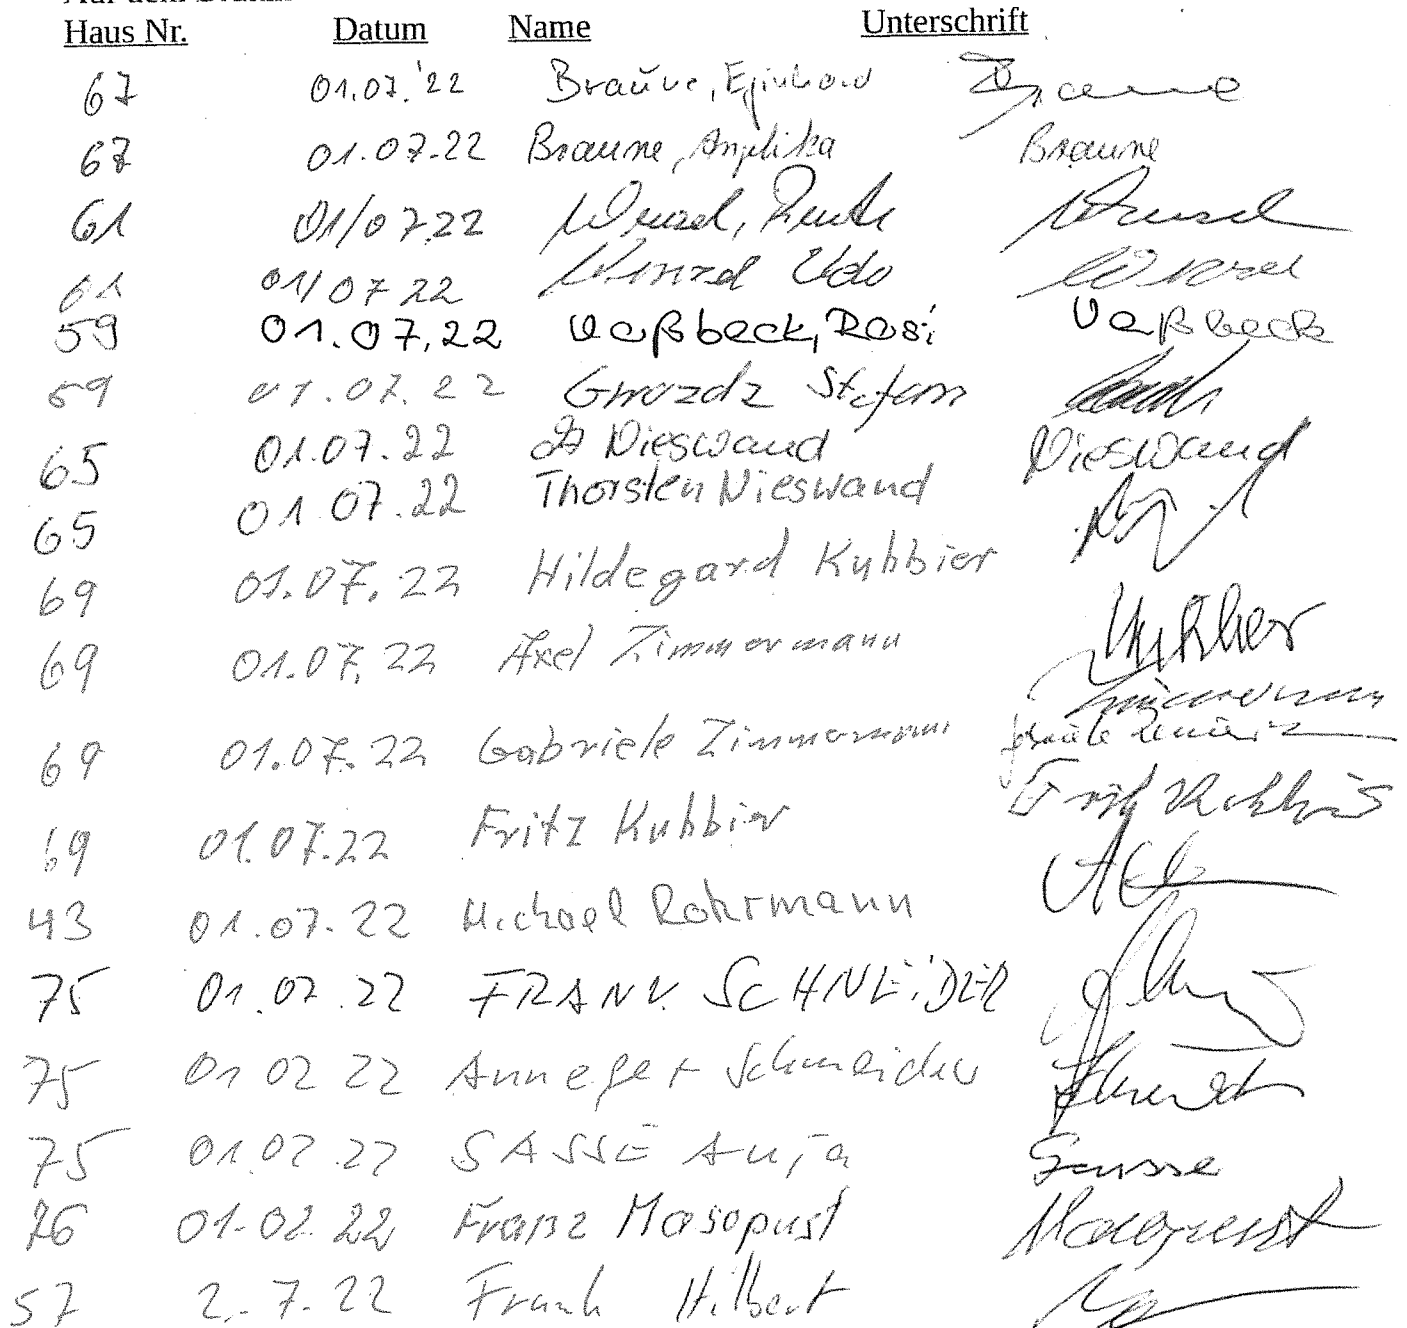 Haus Nr. Datum Name Unterschrift
67 01.07.'22 Braune, Eginhard Braune
67 01.07.22 Braune, Angelika Braune
61 01/07.22 Wenzel, Wenzel
61 01/07 22 Wenzel Udo Wenzel
59 01.07.22 Vaßbeck, Rosi Vaßbeck
59 01.07.22 Gwozdz Stefan
65 01.07.22 Nieswand Nieswand
65 01.07.22 Thorsten Nieswand
69 01.07.22 Hildegard Kubbier
69 01.07.22 Axel Zimmermann Kubbier
Zimmermann
69 01.07.22 Gabriele Zimmermann
69 01.07.22 Fritz Kubbier Fritz Kubbier
43 01.07.22 Michael Rohrmann
75 01.07.22 FRANK SCHNEIDER
75 01 07 22 Anneget Schneider
75 01.07.22 SASSE Anja Sasse
76 01.07.22 Franz Masopust Masopust
57 2.7.22 Frank Hilbert